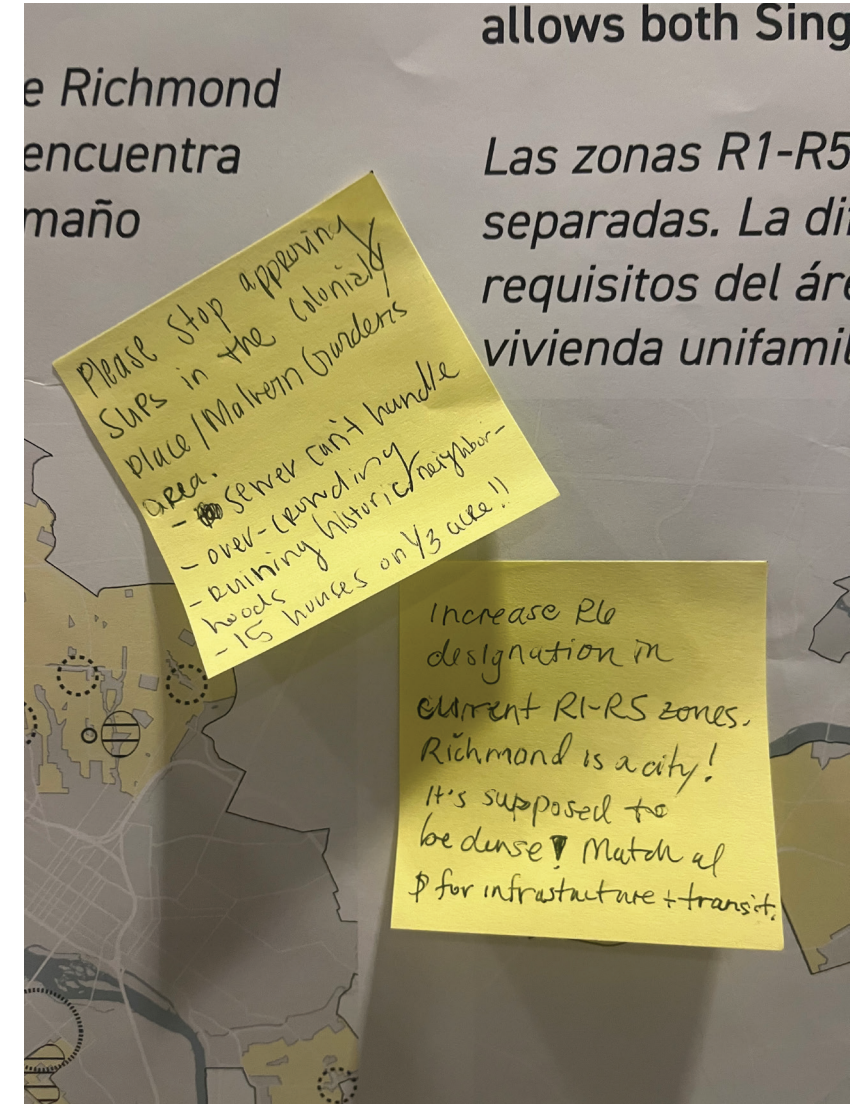 allows both Sing
e Richmond
encuentra
maño
Las zonas R1-R5
separadas. La di
requisitos del áre
vivienda unifamil
Please stop approving
SUPs in the Colonial
place/Malvern Gardens
area.
- sewer can't handle
- over-crowding
- Ruining historic neighbor-
hoods
- 15 houses on 1/3 acre!!
Increase R6
designation in
current R1-R5 zones.
Richmond is a city!
It's supposed to
be dense! Match w/
$ for infrastructure + transit.